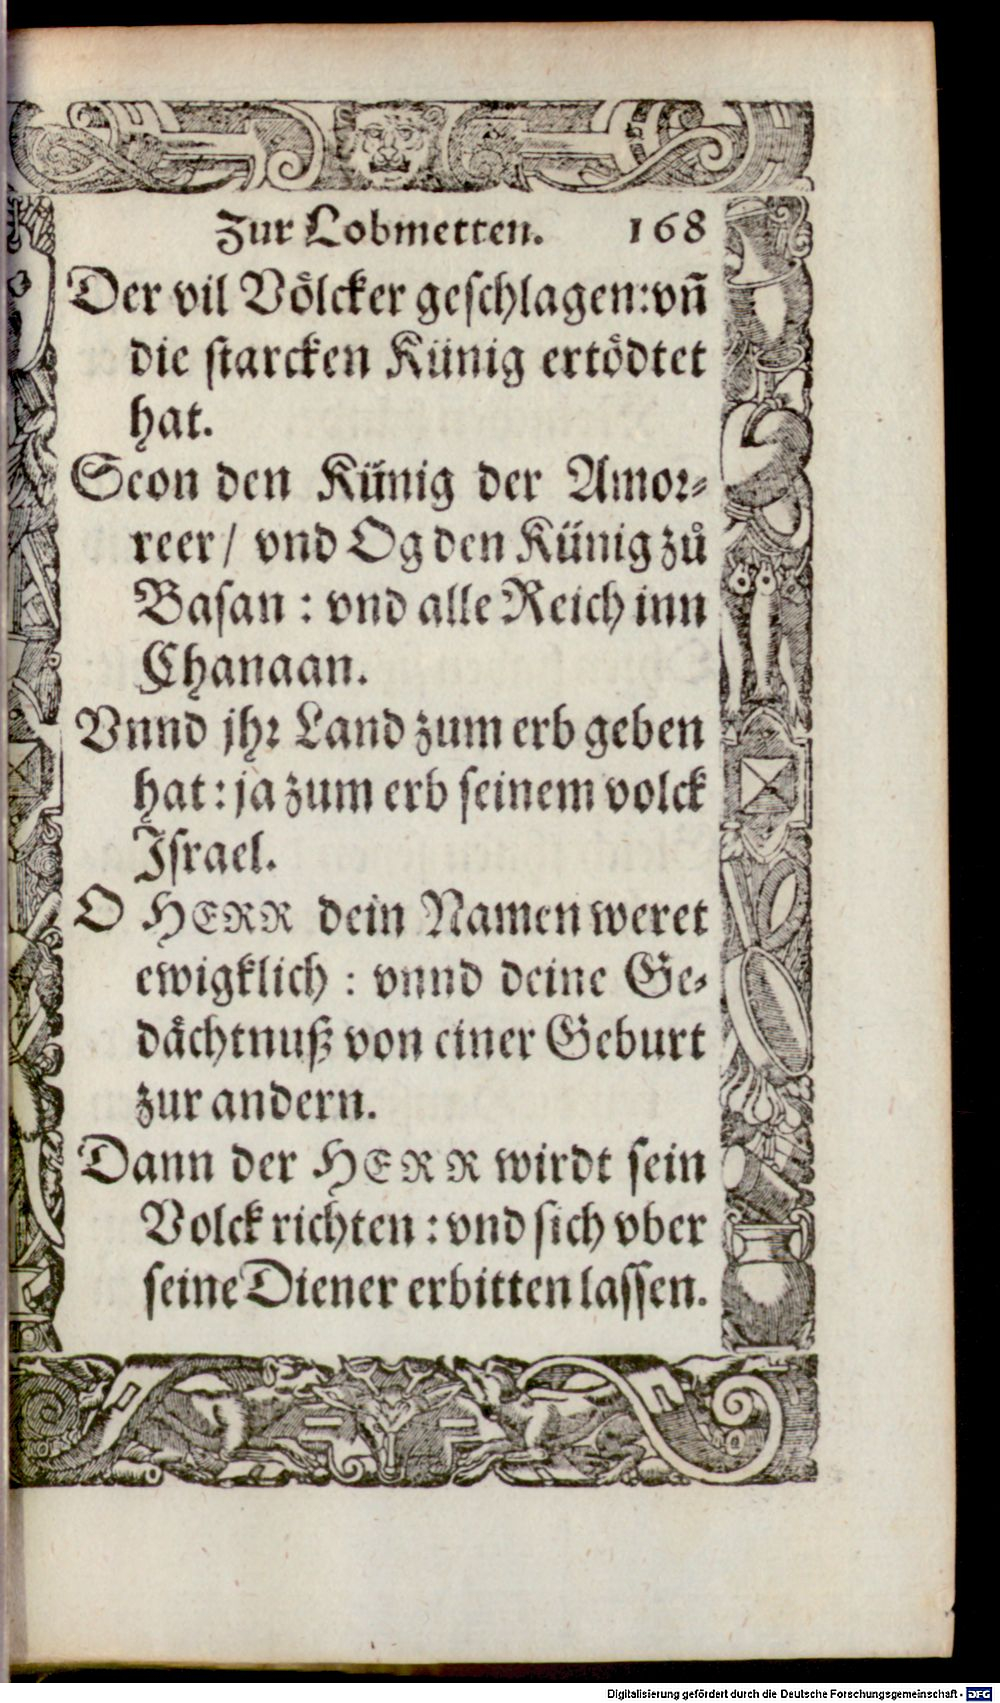 Zur Lobmetten. 168
Der vil Völcker geschlagen: vñ
die starcken Künig ertödtet
hat.
Seon den Künig der Amor-
reer / vnd Og den Künig zů
Basan : vnd alle Reich inn
Chanaan.
Vnnd jhr Land zum erb geben
hat : ja zum erb seinem volck
Israel.
O HERR dein Namen weret
ewigklich : vnnd deine Ge-
dächtnuß von einer Geburt
zur andern.
Dann der HERR wirdt sein
Volck richten : vnd sich vber
seine Diener erbitten lassen.
Digitalisierung gefördert durch die Deutsche Forschungsgemeinschaft - DFG